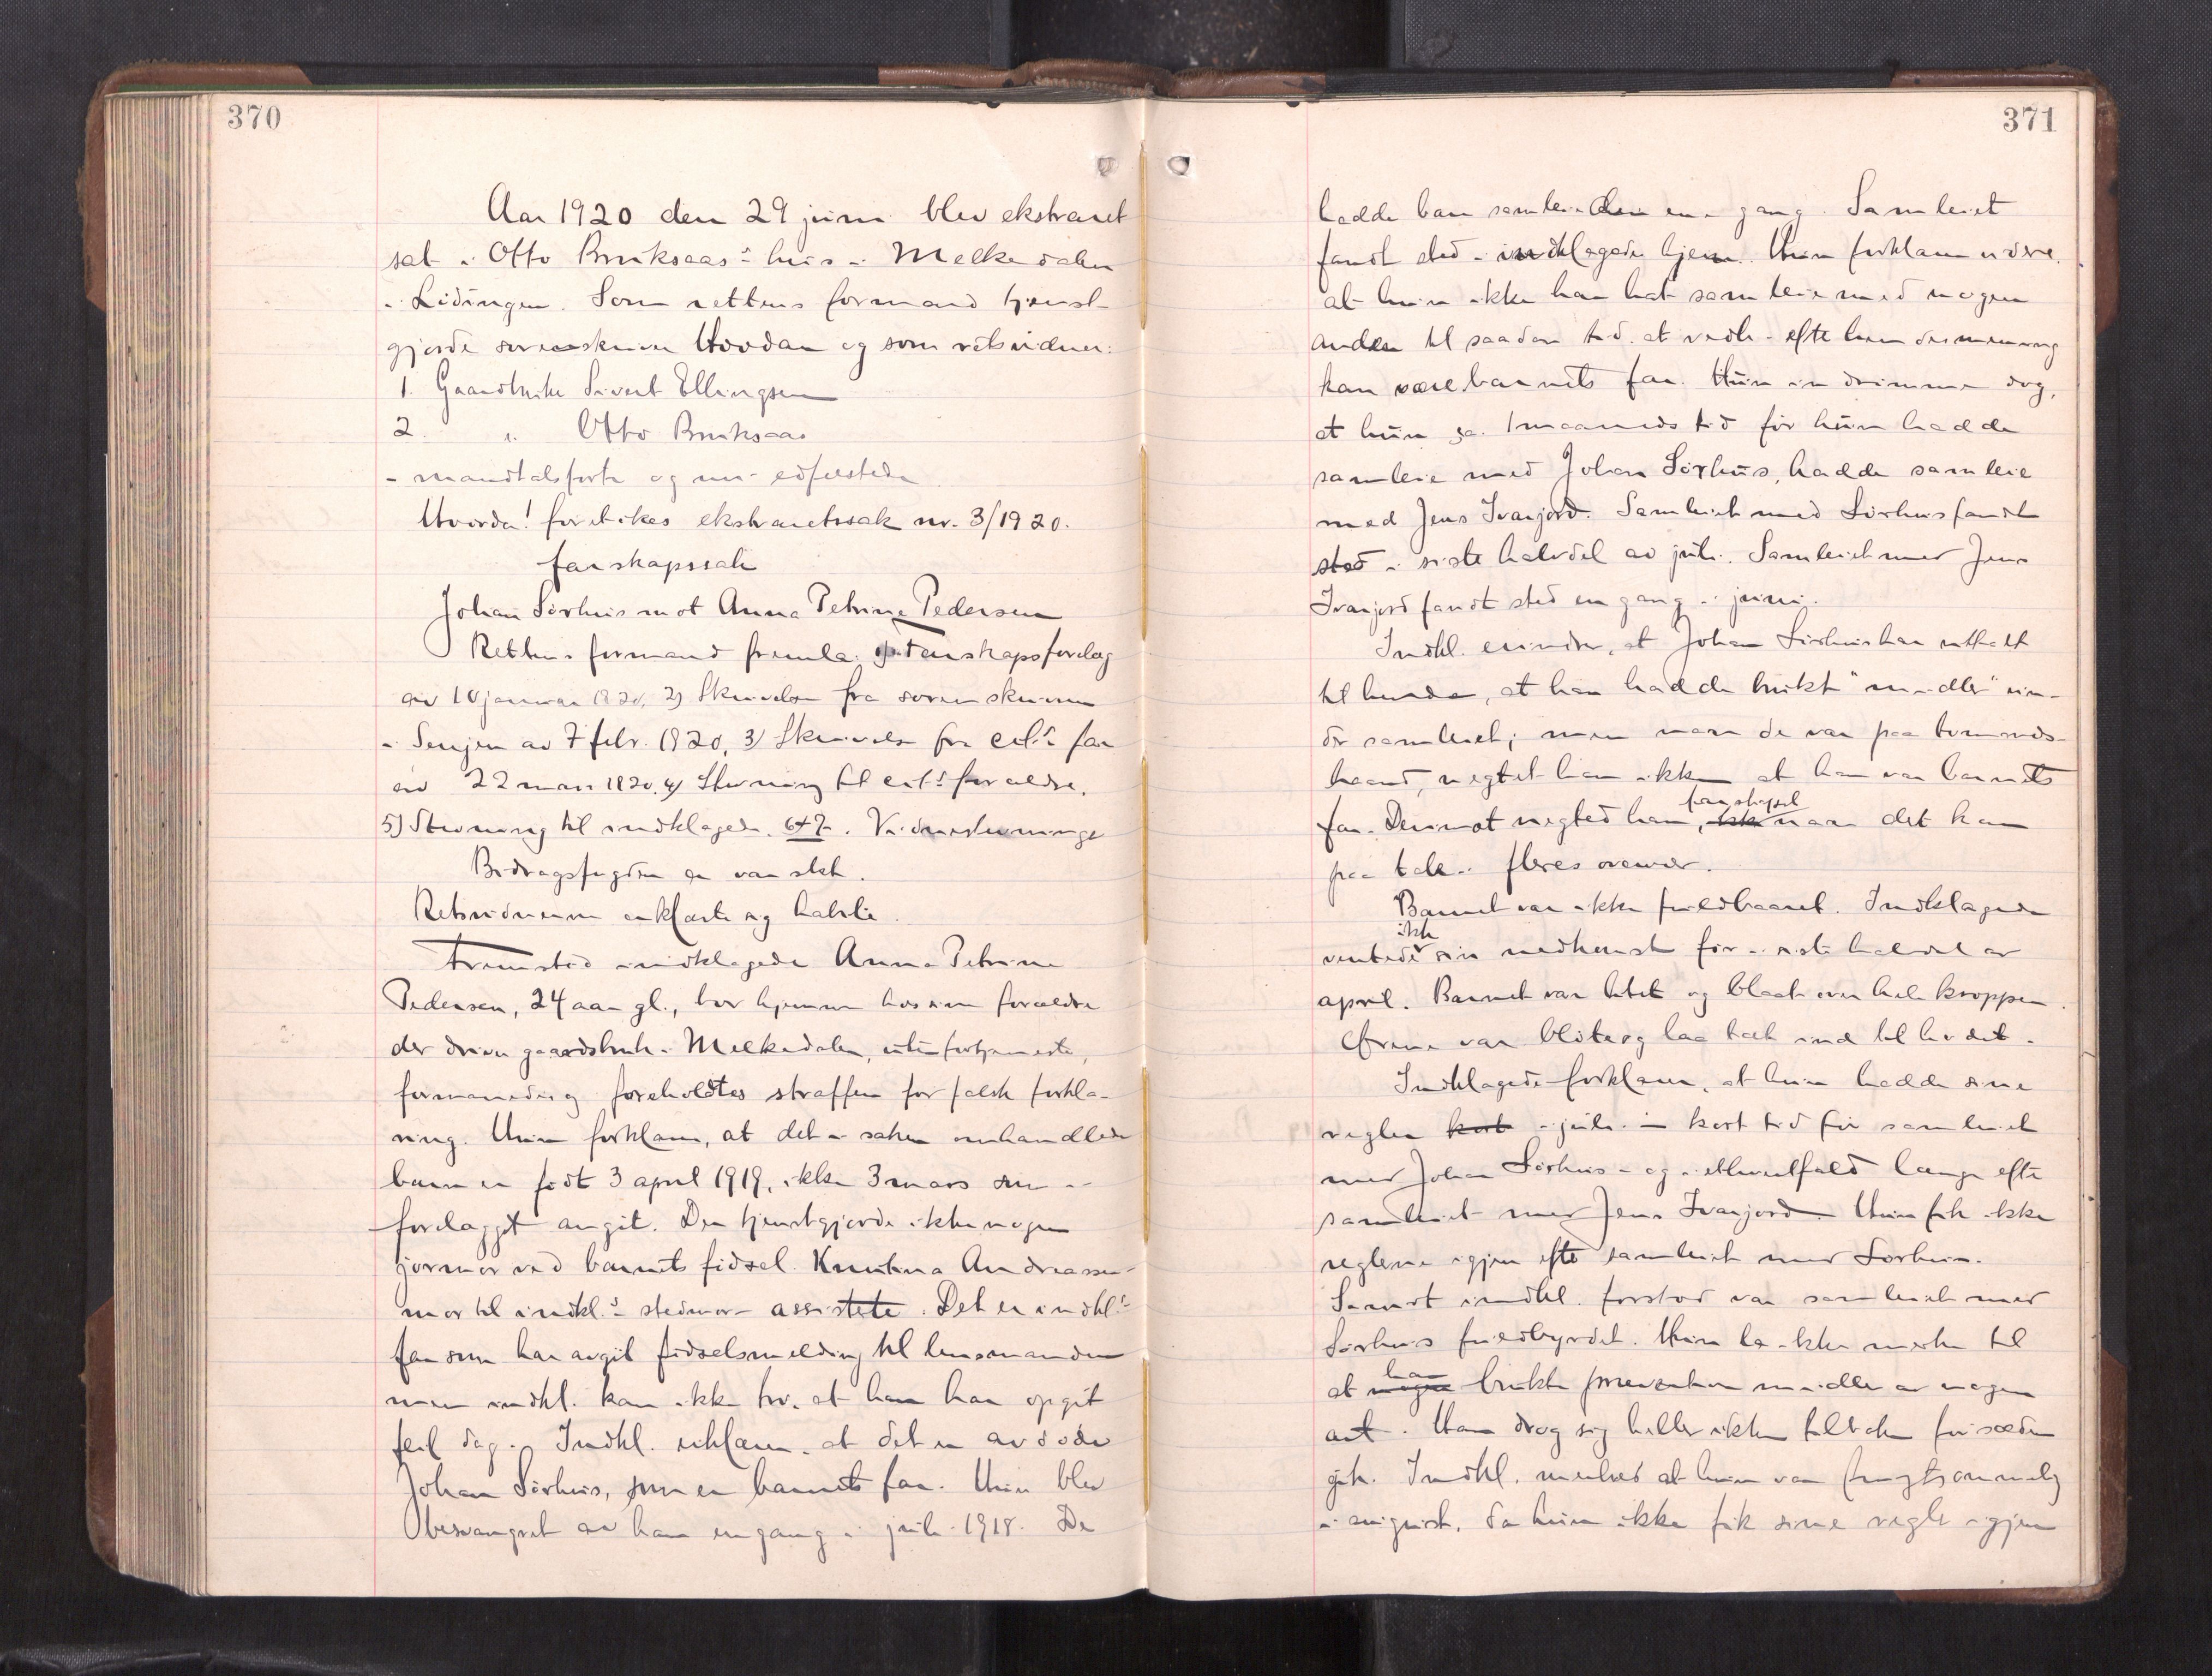 370
Aar 1920 den 29 juni blev ekstraret
sat i Otto Bruksaas's hus i Melkedalen
i Lødingen. Som rettens formand tjenst-
gjorde sorenskriver Hovdan og som retsvidner:
1. Gaardbruker Sivert Ellingsen
2. " Otto Bruksaas
- mandtalsførte og nu edfæstede
Hvorda! foretokes ekstraretssak nr. 3/1920.
farskapssak
Johan Sørhus mot Anna Petrine Pedersen
Rettens formand fremla: 1) Farskapsforelæg
av 10 januar 1920, 2) Skrivelse fra sorenskriveren
i Senjen av 7 febr. 1920, 3) Skrivelse fra cit.s far
av 22 mars 1920, 4) Stevning til cit.s forældre,
5) Stevning til indklagede. 6+7. Vidnestevninger
Bidragsfogden er varslet.
Retsvidnerne erklærte sig habile.
Fremstod indklagede Anna Petrine
Pedersen, 24 aar gl., bor hjemme hos sine forældre
der driver gaardsbruk i Melkedalen, uten fortjeneste,
formanedes og foreholdtes straffen for falsk forkla-
ring. Hun forklarer, at det i saken omhandlede
barn er født 3 april 1919, ikke 3 mars som i
forelægget angit. Der tjenstgjorde ikke nogen
jormor ved barnets fødsel. Kristina Andreassen -
mor til indkl.s stedmor - assistete. Det er indkl.s
far som har avgit fødselsmelding til lensmanden
men indkl. kan ikke tro, at han har opgit
feil dag. Indkl. erklærer, at det er avdøde
Johan Sørhus, som er barnets far. Hun blev
besvangret av ham en gang i juli 1918. De
371
hadde bare samleie den ene gang. Samleiet
fandt sted i indklagedes hjem. Hun forklarer videre,
at hun ikke har hat samleie med nogen
anden til saadan tid, at vedk. efter hendes mening
kan være barnets far. Hun indrømmer dog,
at hun ca. 1 maaneds tid før hun hadde
samleie med Johan Sørhus, hadde samleie
med Jens Ivarjord. Samleiet med Sørhus fandt
sted i siste halvdel av juli. Samleiet med Jens
Ivarjord fandt sted en gang i juni.
Indkl. erindrer, at Johan Sørhus har uttalt
til hende, at han hadde brukt "midler" un-
der samleiet; men naar de var paa tomands-
haand, negtet han ikke at han var barnets
far. Derimot negted han farskapet, naar det kom
paa tale i fleres overvær.
Barnet var ikke fuldbaaret. Indklagede
ventede ikke sin nedkomst før i siste halvdel av
april. Barnet var litet og blaat over hele kroppen.
Ørene var bløte og laa tæt ind til hodet.
Indklagede forklarer, at hun hadde sine
regler i juli - kort tid før samleiet
med Johan Sørhus - og i ethvertfald længe efter
samleiet med Jens Ivarjord. Hun fik ikke
reglerne igjen efter samleiet med Sørhus.
Saavidt indkl. forstod var samleiet med
Sørhus fuldbyrdet. Hun la ikke merke til
at han brukte preventive midler av nogen
art. Han drog sig heller ikke tilbake før sæden
gik. Indkl. merked at hun var frugtsommelig
i august, da hun ikke fik sine regler igjen